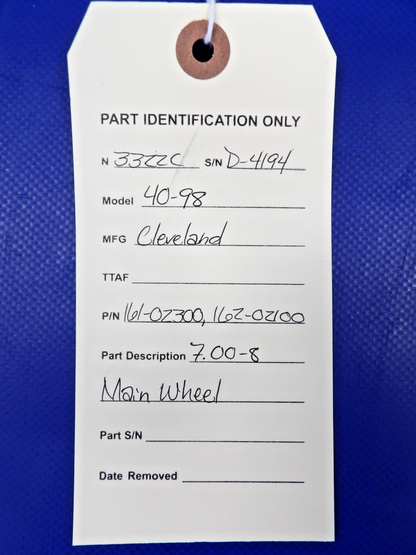 PART IDENTIFICATION ONLY
N 3322C S/N D-4194
Model 40-98
MFG Cleveland
TTAF
P/N 161-02300, 162-02100
Part Description 7.00-8
Main Wheel
Part S/N
Date Removed